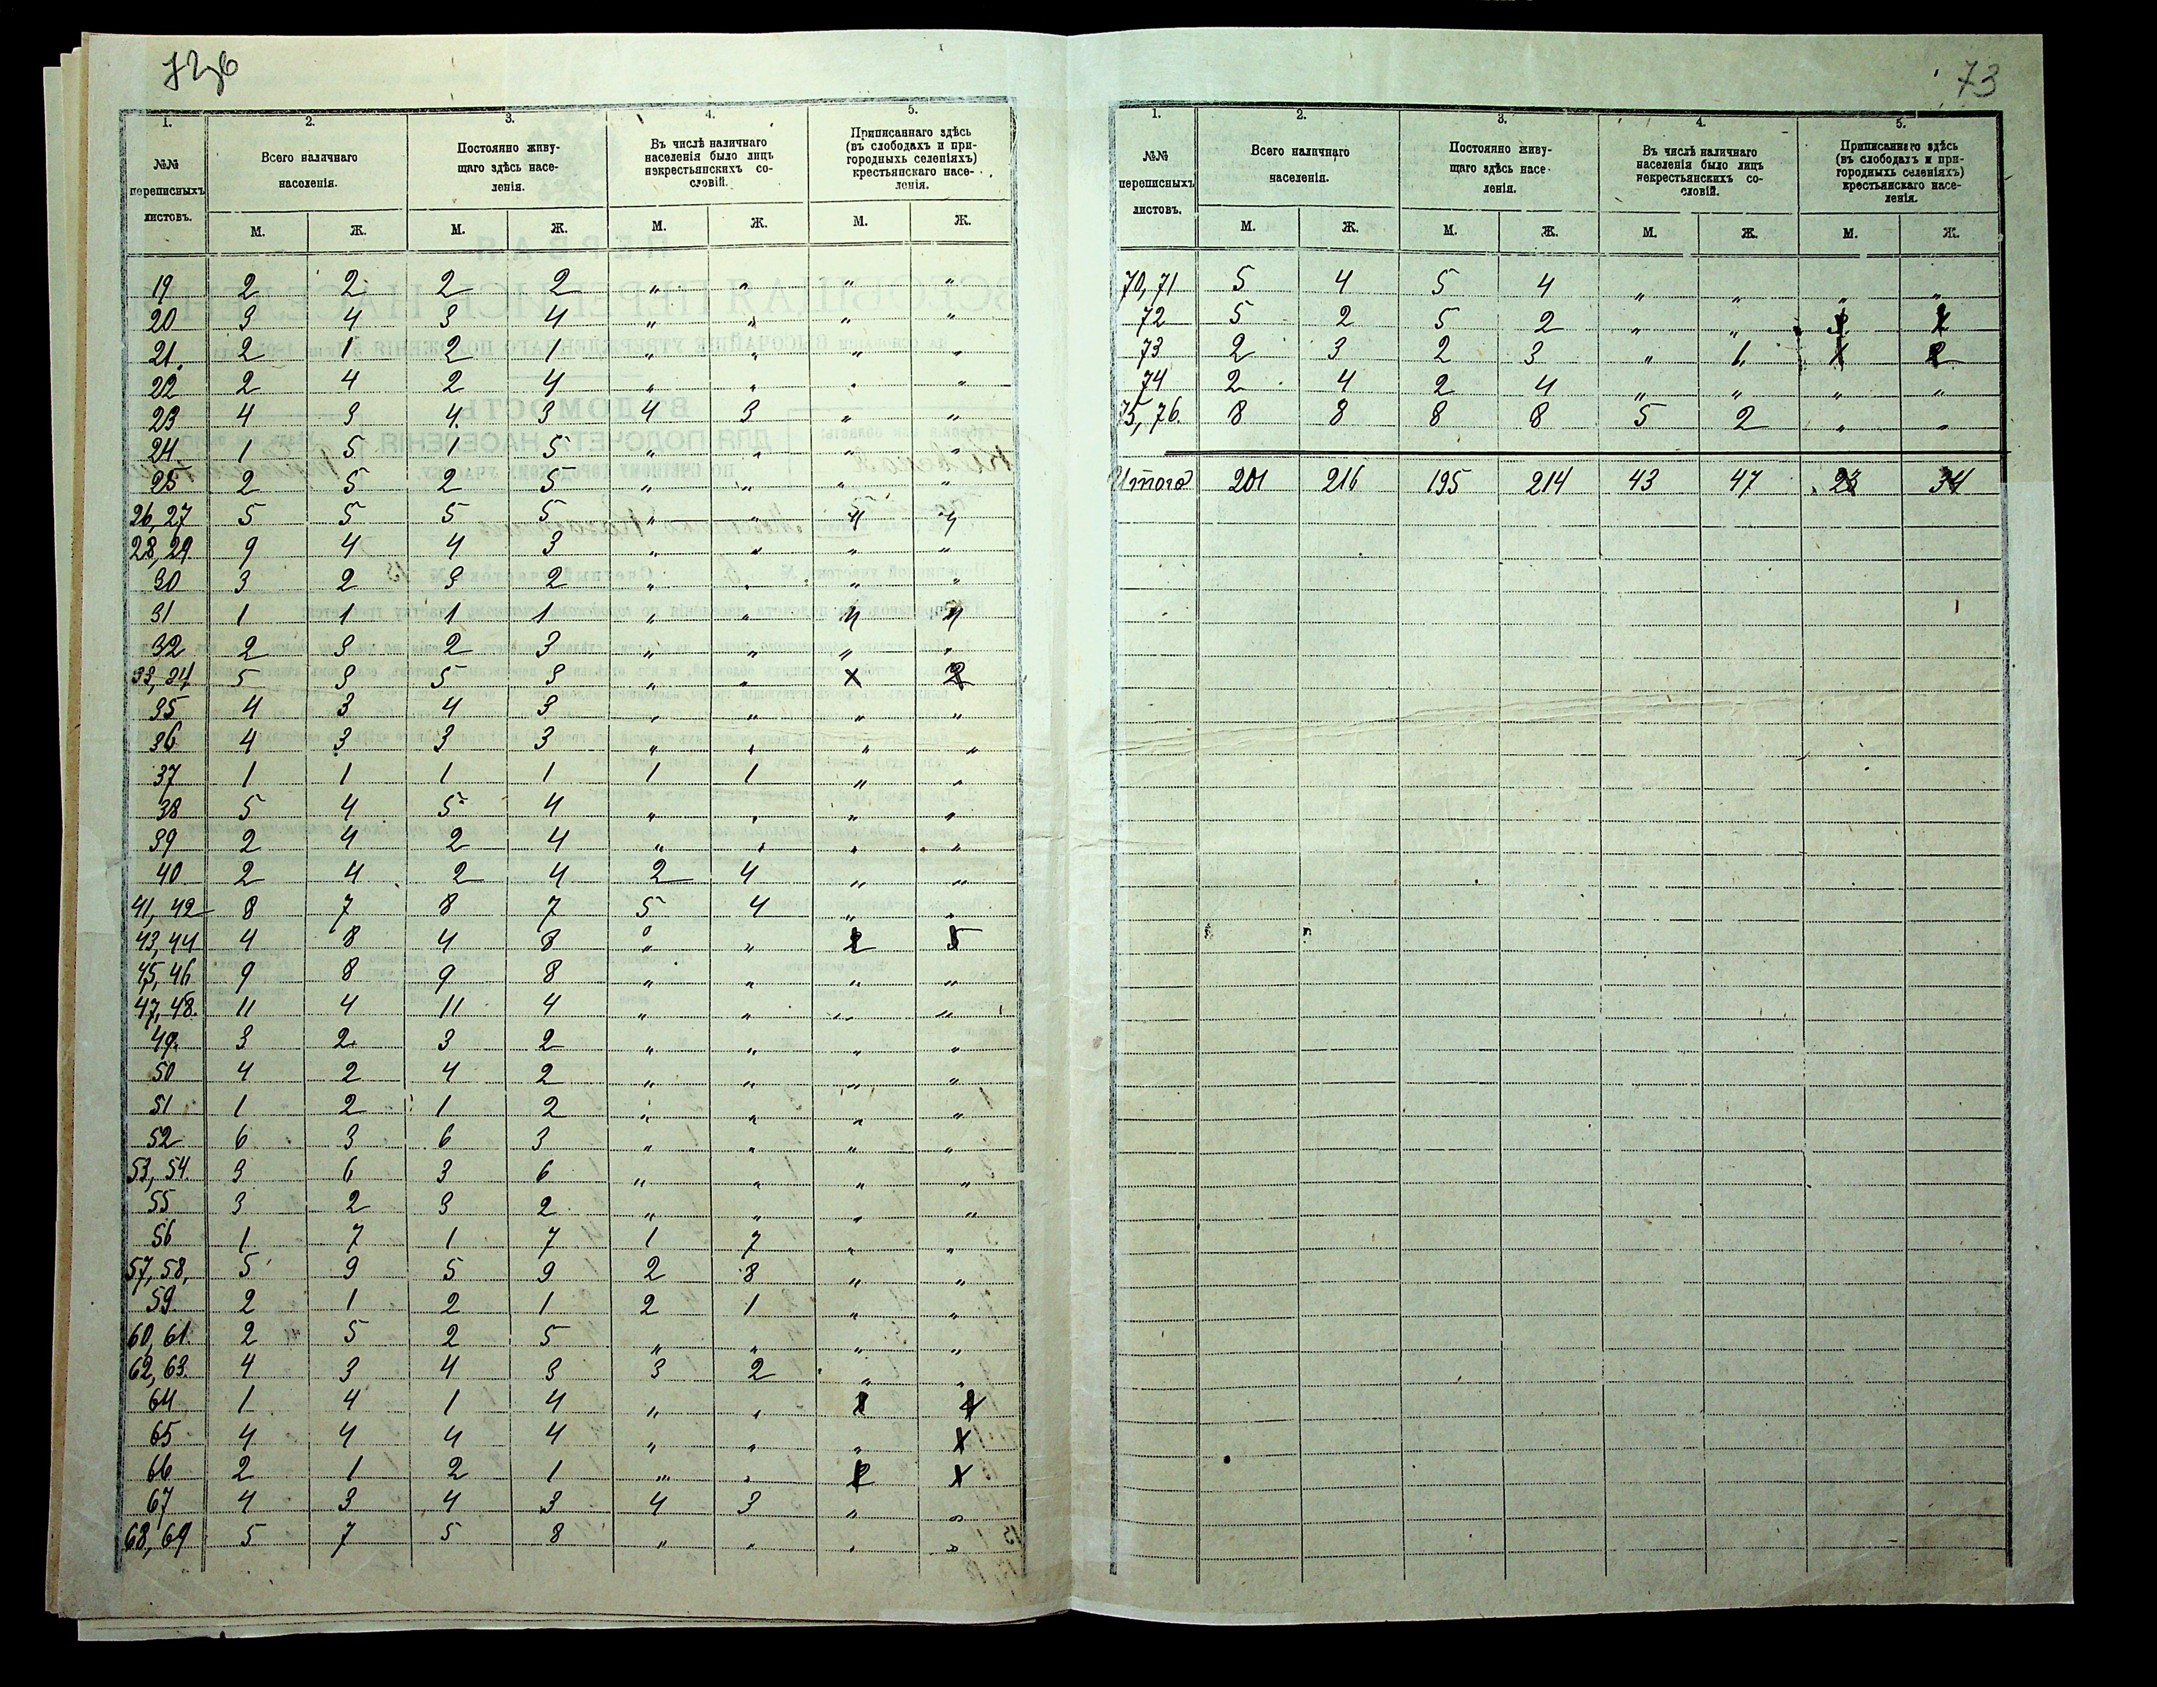 73
1. 2. 3. 4. 5.
№№ переписныхъ листовъ.
Всего наличнаго населенія.
Постоянно живущаго здѣсь населенія.
Въ числѣ наличнаго населенія было лицъ некрестьянскихъ сословій.
Приписаннаго здѣсь (въ слободахъ и пригородныхъ селеніяхъ) крестьянскаго населенія.
М. Ж. М. Ж. М. Ж. М. Ж.
19 2 2 2 2 " " " "
20 3 4 3 4 " " " "
21. 2 1 2 1 " " " "
22 2 4 2 4 " " " "
23 4 3 4 3 4 3 " "
24 1 5 1 5 " " " "
25 2 5 2 5 " " " "
26, 27 5 5 5 5 " "
28, 29 9 4 4 3 " " " "
30 3 2 3 2 " " " "
31 1 1 1 1 " "
32 2 3 2 3 " " " "
33, 34 5 3 5 3 " " 2
35 4 3 4 3 " " " "
36 4 3 3 3 " " " "
37 1 1 1 1 1 1 " "
38 5 4 5 4 " " " "
39 2 4 2 4 " " " "
40 2 4 2 4 2 4 " "
41, 42 8 7 8 7 5 4 " "
43, 44 4 8 4 8 " " 2 5
45, 46 9 8 9 8 " " " "
47, 48. 11 4 11 4 " " " "
49. 3 2 3 2 " " " "
50 4 2 4 2 " " " "
51 1 2 1 2 " " " "
52 6 3 6 3 " " " "
53, 54. 3 6 3 6 " " " "
55 3 2 3 2 " " " "
56 1 7 1 7 1 7 " "
57, 58, 5 9 5 9 2 8 " "
59 2 1 2 1 2 1 " "
60, 61. 2 5 2 5 " " " "
62, 63. 4 3 4 3 3 2 " "
64 1 4 1 4 " " 1 4
65 4 4 4 4 " " " 1
66 2 1 2 1 " " 2 1
67 4 3 4 3 4 3 " "
68, 69 5 7 5 8 " " " "
1. 2. 3. 4. 5.
№№ переписныхъ листовъ.
Всего наличнаго населенія.
Постоянно живущаго здѣсь населенія.
Въ числѣ наличнаго населенія было лицъ некрестьянскихъ сословій.
Приписаннаго здѣсь (въ слободахъ и пригородныхъ селеніяхъ) крестьянскаго населенія.
М. Ж. М. Ж. М. Ж. М. Ж.
70, 71 5 4 5 4 " " " "
72 5 2 5 2 " "
73 2 3 2 3 " 1 1 2
74 2 4 2 4 " " " "
75, 76. 8 8 8 8 5 2 " "
Итого 201 216 195 214 43 47 23 34